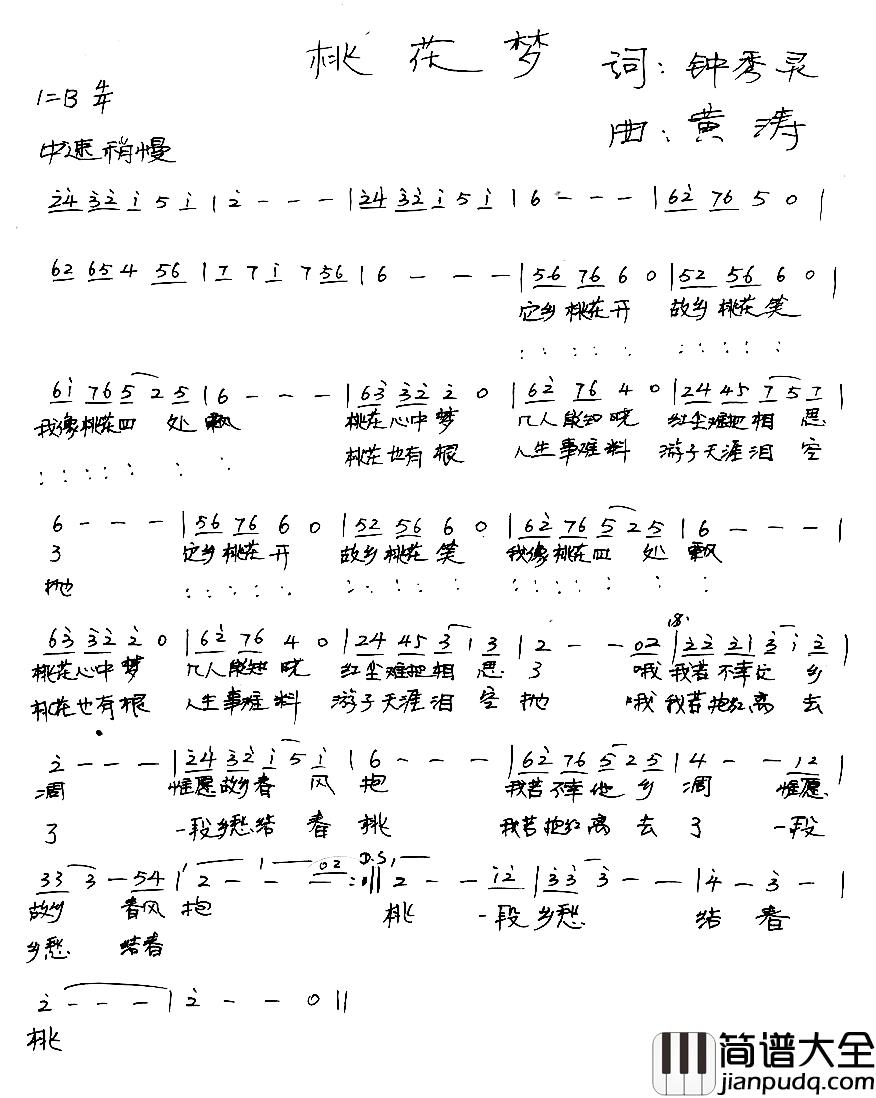 桃花梦
词：钟秀灵
1=B 4/4
曲：黄涛
中速稍慢
2̇4̇ 3̇2̇ 1̇ 5 1̇ | 2̇ - - - | 2̇4̇ 3̇2̇ 1̇ 5 1̇ | 6 - - - | 62̇ 76 5 0 |
62 65 4 56 | 7 7 1̇ 7 56 | 6 - - - | 56 76 6 0 | 52 56 6 0 |
它乡桃花开 故乡桃花笑
61̇ 76 5 2 5 | 6 - - - | 63̇ 3̇2̇ 2̇ 0 | 62̇ 76 4 0 | 24 45 7 5 7 |
我像桃花四处飘 桃花心中梦 几人能知晓 红尘难把相思
桃花也有根 人生事难料 游子天涯泪空
6 - - - | 56 76 6 0 | 52 56 6 0 | 62̇ 76 5 2 5 | 6 - - - |
了 它乡桃花开 故乡桃花笑 我像桃花四处飘
抛
63̇ 3̇2̇ 2̇ 0 | 62̇ 76 4 0 | 24 45 3 1 3 | 2 - - 02 | 2̇2̇ 2̇1̇ 3̇ 1̇ 2̇ |
桃花心中梦 几人能知晓 红尘难把相思了 哦 我若不幸它乡
桃花也有根 人生事难料 游子天涯泪空抛 哦 我若抱红离去
2̇ - - - | 2̇4̇ 3̇2̇ 1̇ 5 1̇ | 6 - - - | 62̇ 76 5 2 5 | 4 - - 12 |
凋 惟愿故乡春风抱 我若不幸他乡凋 惟愿
了 一段乡愁结春桃 我若抱红离去了 一段
33 3 - 54 | 2 - - - 02 :|| D.S. 2 - - 1̇2̇ | 3̇3̇ 3̇ - - | 4̇ - 3̇ - |
故乡春风抱 桃 一段乡愁 结春
乡愁结春
2̇ - - - | 2̇ - - 0 ||
桃
简谱大全
jianpudq.com